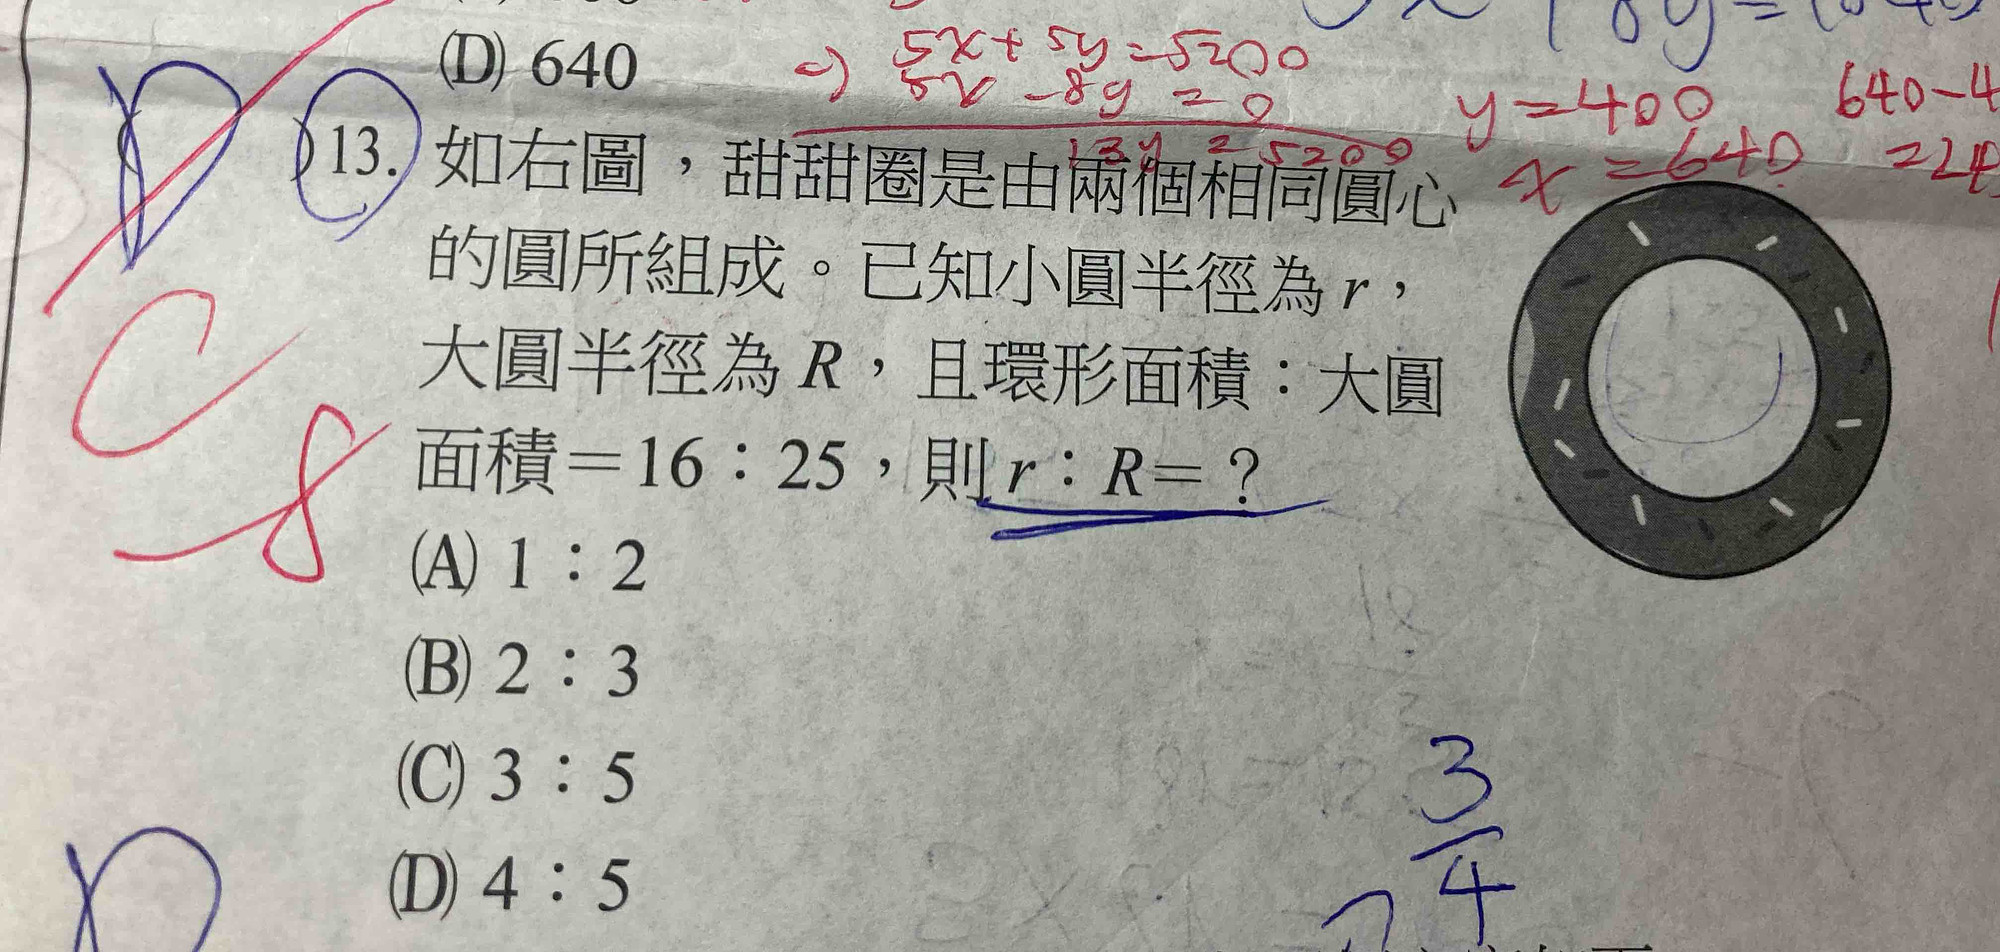 (D) 640
5x+5y=5200
-) 5x-8y=0
13y=5200
y=400
x=640
640-4
=24
D
13. 如右圖，甜甜圈是由兩個相同圓心
的圓所組成。已知小圓半徑為 r，
大圓半徑為 R，且環形面積：大圓
面積＝16：25，則 r：R＝？
C
(A) 1：2
(B) 2：3
(C) 3：5
(D) 4：5
3
4